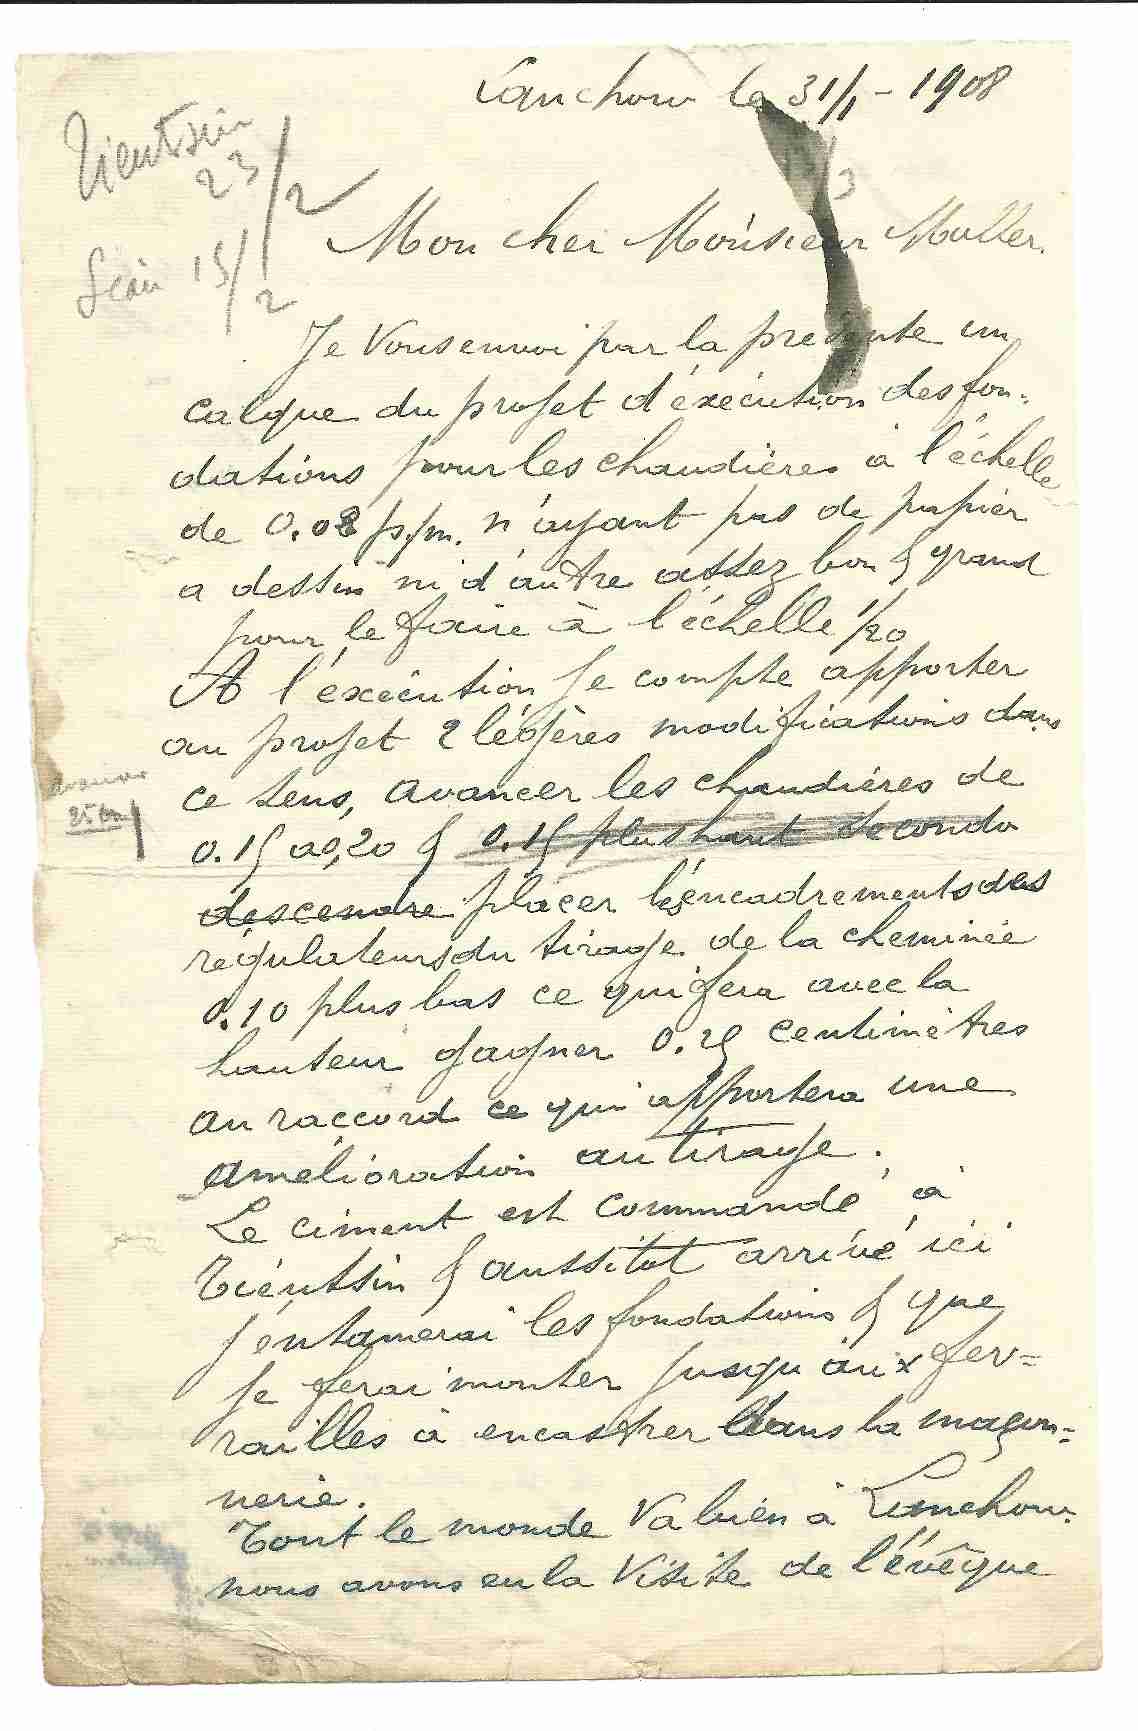 Lanchow le 31/1 - 1908
Tientsin
23/2
13/3
Mon cher Monsieur Muller.
15/2
Je Vous envoi par la présente un
calque du projet d'éxécution des fon=
dations pour les chaudières à l'échelle
de 0.02 p.m. n'ayant pas de papier
a dessin ni d'autre assez bon & grand
pour le faire à l'échelle 1/20
A l'éxécution Je compte apporter
au projet 2 légères modifications dans
ce sens, avancer les chaudières de
25 cm
0.15 a 0,20 & 0.15 plus haut
descendre placer les encadrements des
régulateurs du tirage de la cheminée
0.10 plus bas ce qui fera avec la
hauteur gagner 0.25 centimètres
au raccord ce qui apportera une
amélioration au tirage.
Le ciment est commandé à
Tientsin & aussitot arrivé ici
J'entamerai les fondations & que
Je ferai monter jusqu'aux fer=
railles à encastrer dans la maçon=
nerie.
Tout le monde va bien à Lanchow.
nous avons eu la Visite de l'évêque